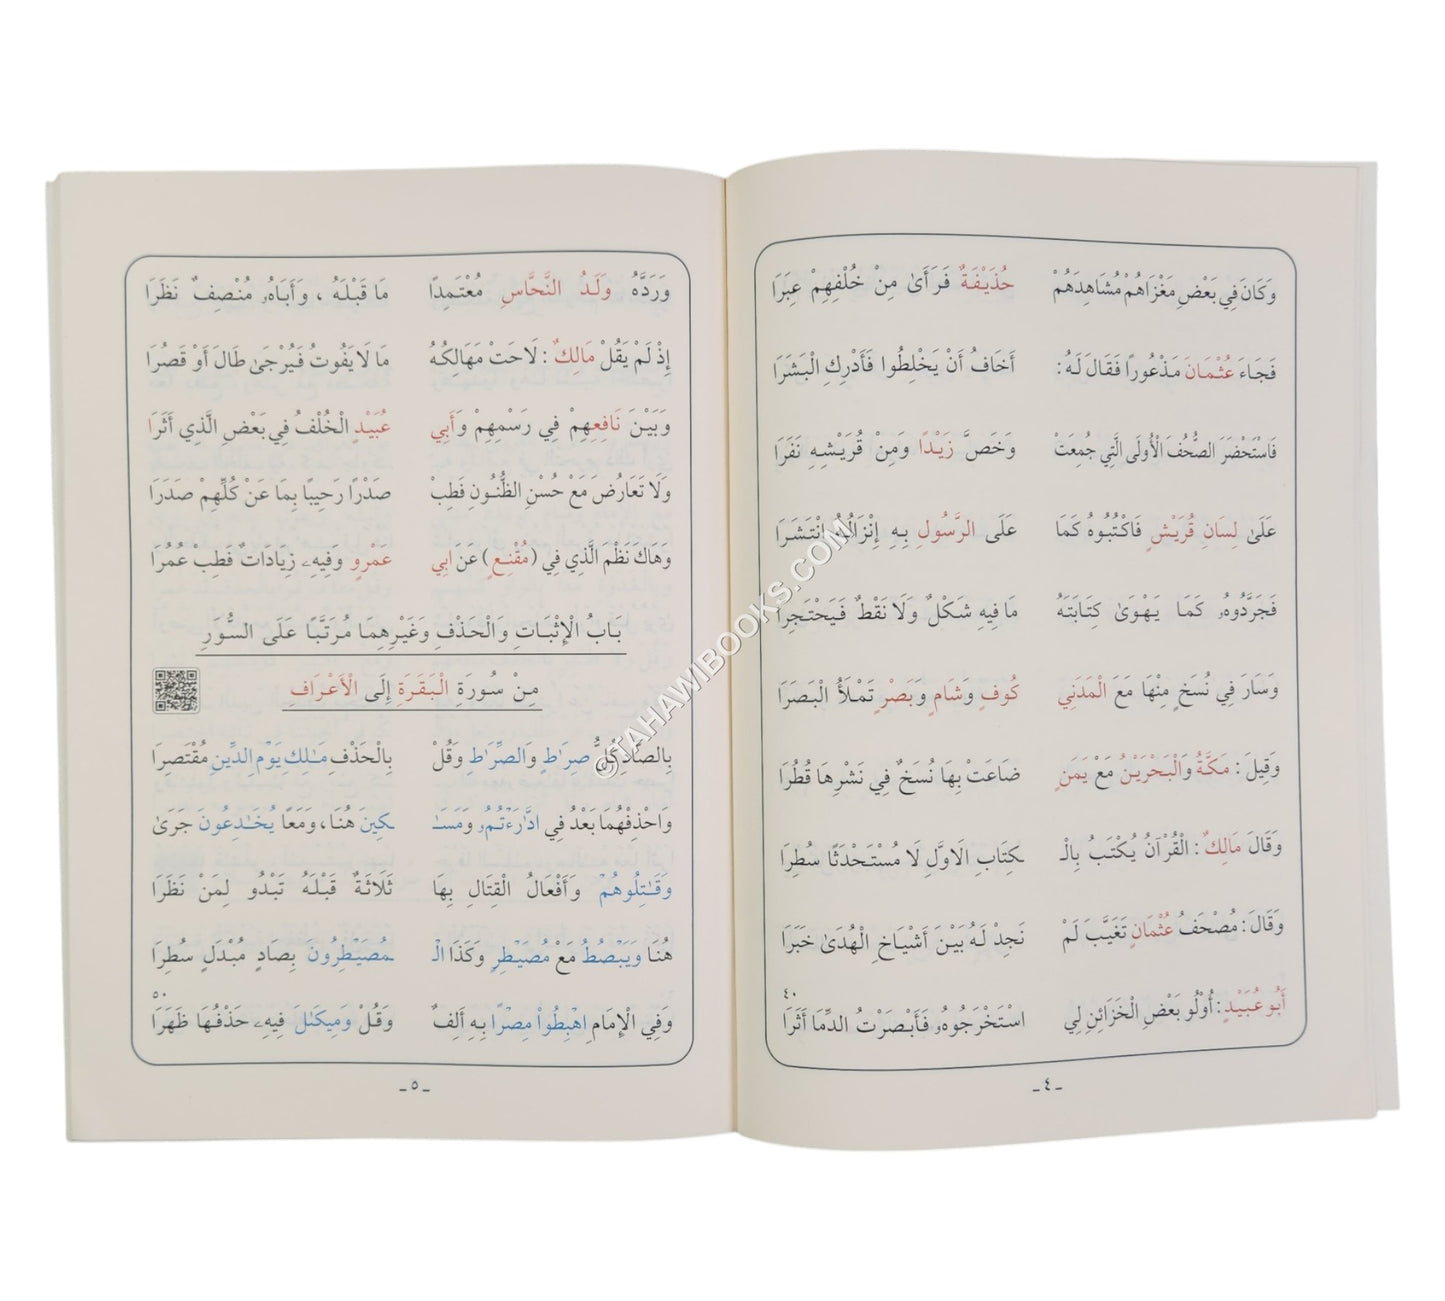 وَكَانَ فِي بَعْضِ مَغْزَاهُمْ مُشَاهِدَهُمْ حُذَيْفَةٌ فَرَأَىٰ مِنْ خُلْفِهِمْ عِبَرَا
فَجَاءَ عُثْمَانَ مَذْعُورًا فَقَالَ لَهُ : أَخَافُ أَنْ يَخْلِطُوا فَأَدْرِكِ الْبَشَرَا
فَاسْتَحْضَرَ الصُّحُفَ الْأُولَى الَّتِي جُمِعَتْ وَخَصَّ زَيْدًا وَمِنْ قُرَيْشِهِ نَفَرَا
عَلَىٰ لِسَانِ قُرَيْشٍ فَاكْتُبُوهُ كَمَا عَلَى الرَّسُولِ بِهِ إِنْزَالُهُ انْتَشَرَا
فَجَرَّدُوهُ كَمَا يَهْوَىٰ كِتَابَتَهُ مَا فِيهِ شَكْلٌ وَلَا نَقْطٌ فَيَحْتَجِرَا
وَسَارَ فِي نُسَخٍ مِنْهَا مَعَ الْمَدَنِي كُوفٍ وَشَامٍ وَبَصْرٍ تَمْلَأُ الْبَصَرَا
وَقِيلَ : مَكَّةُ وَالْبَحْرَيْنُ مَعْ يَمَنٍ ضَاعَتْ بِهَا نُسَخٌ فِي نَشْرِهَا قُطُرَا
وَقَالَ مَالِكٌ : الْقُرْآنُ يُكْتَبُ بِالْـ ـكِتَابِ الَاوَّلِ لَا مُسْتَحْدَثًا سُطِرَا
وَقَالَ : مُصْحَفُ عُثْمَانٍ تَغَيَّبَ لَمْ نَجِدْ لَهُ بَيْنَ أَشْيَاخِ الْهُدَىٰ خَبَرَا
أَبُو عُبَيْدٍ : أُولُو بَعْضِ الْخَزَائِنِ لِي اسْتَخْرَجُوهُ فَأَبْصَرْتُ الدِّمَا أَثَرَا ٤٠
ـ ٤ ـ
وَرَدَّهُ وَلَدُ النَّحَّاسِ مُعْتَمِدًا مَا قَبْلَهُ ، وَأَبَاهُ مُنْصِفٌ نَظَرَا
إِذْ لَمْ يَقُلْ مَالِكٌ : لَاحَتْ مَهَالِكُهُ مَا لَا يَفُوتُ فَيُرْجَىٰ طَالَ أَوْ قَصُرَا
وَبَيْنَ نَافِعِهِمْ فِي رَسْمِهِمْ وَأَبِي عُبَيْدٍ الْخُلْفُ فِي بَعْضِ الَّذِي أَثَرَا
وَلَا تَعَارُضَ مَعْ حُسْنِ الظُّنُونِ فَطِبْ صَدْرًا رَحِيبًا بِمَا عَنْ كُلِّهِمْ صَدَرَا
وَهَاكَ نَظْمَ الَّذِي فِي (مُقْنِعٍ) عَنَ ابِي عَمْرٍو وَفِيهِ زِيَادَاتٌ فَطِبْ عُمُرَا
بَابُ الْإِثْبَاتِ وَالْحَذْفِ وَغَيْرِهِمَا مُرَتَّبًا عَلَى السُّوَرِ
مِنْ سُورَةِ الْبَقَرَةِ إِلَى الْأَعْرَافِ
بِالصَّادِ كُلُّ صِرَاطٍ وَالصِّرَاطِ وَقُلْ بِالْحَذْفِ مَـٰلِكِ يَوْمِ الدِّينِ مُقْتَصِرَا
وَاحْذِفْهُمَا بَعْدُ فِي ادَّٰرَءْتُمُ وَمَسَـٰ ـكِينَ هُنَا ، وَمَعًا يُخَـٰدِعُونَ جَرَىٰ
وَقَـٰتِلُوهُمْ وَأَفْعَالُ الْقِتَالِ بِهَا ثَلَاثَةٌ قَبْلَهُ تَبْدُو لِمَنْ نَظَرَا
هُنَا وَيَبْصُطُ مَعْ مُصَيْطِرٍ وَكَذَا الْـ ـمُصَيْطِرُونَ بِصَادٍ مُبْدَلٍ سُطِرَا
وَفِي الْإِمَامِ اهْبِطُوا۟ مِصْرًا بِهِ أَلِفٌ وَقُلْ وَمِيكَىٰلَ فِيهِ حَذْفُهَا ظَهَرَا ٥٠
ـ ٥ ـ
©TAHAWIBOOKS.COM